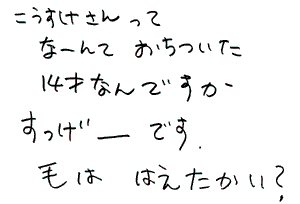 こうすけさんって
なーんて おちついた
14才なんですか
すっげーです.
毛は はえたかい?